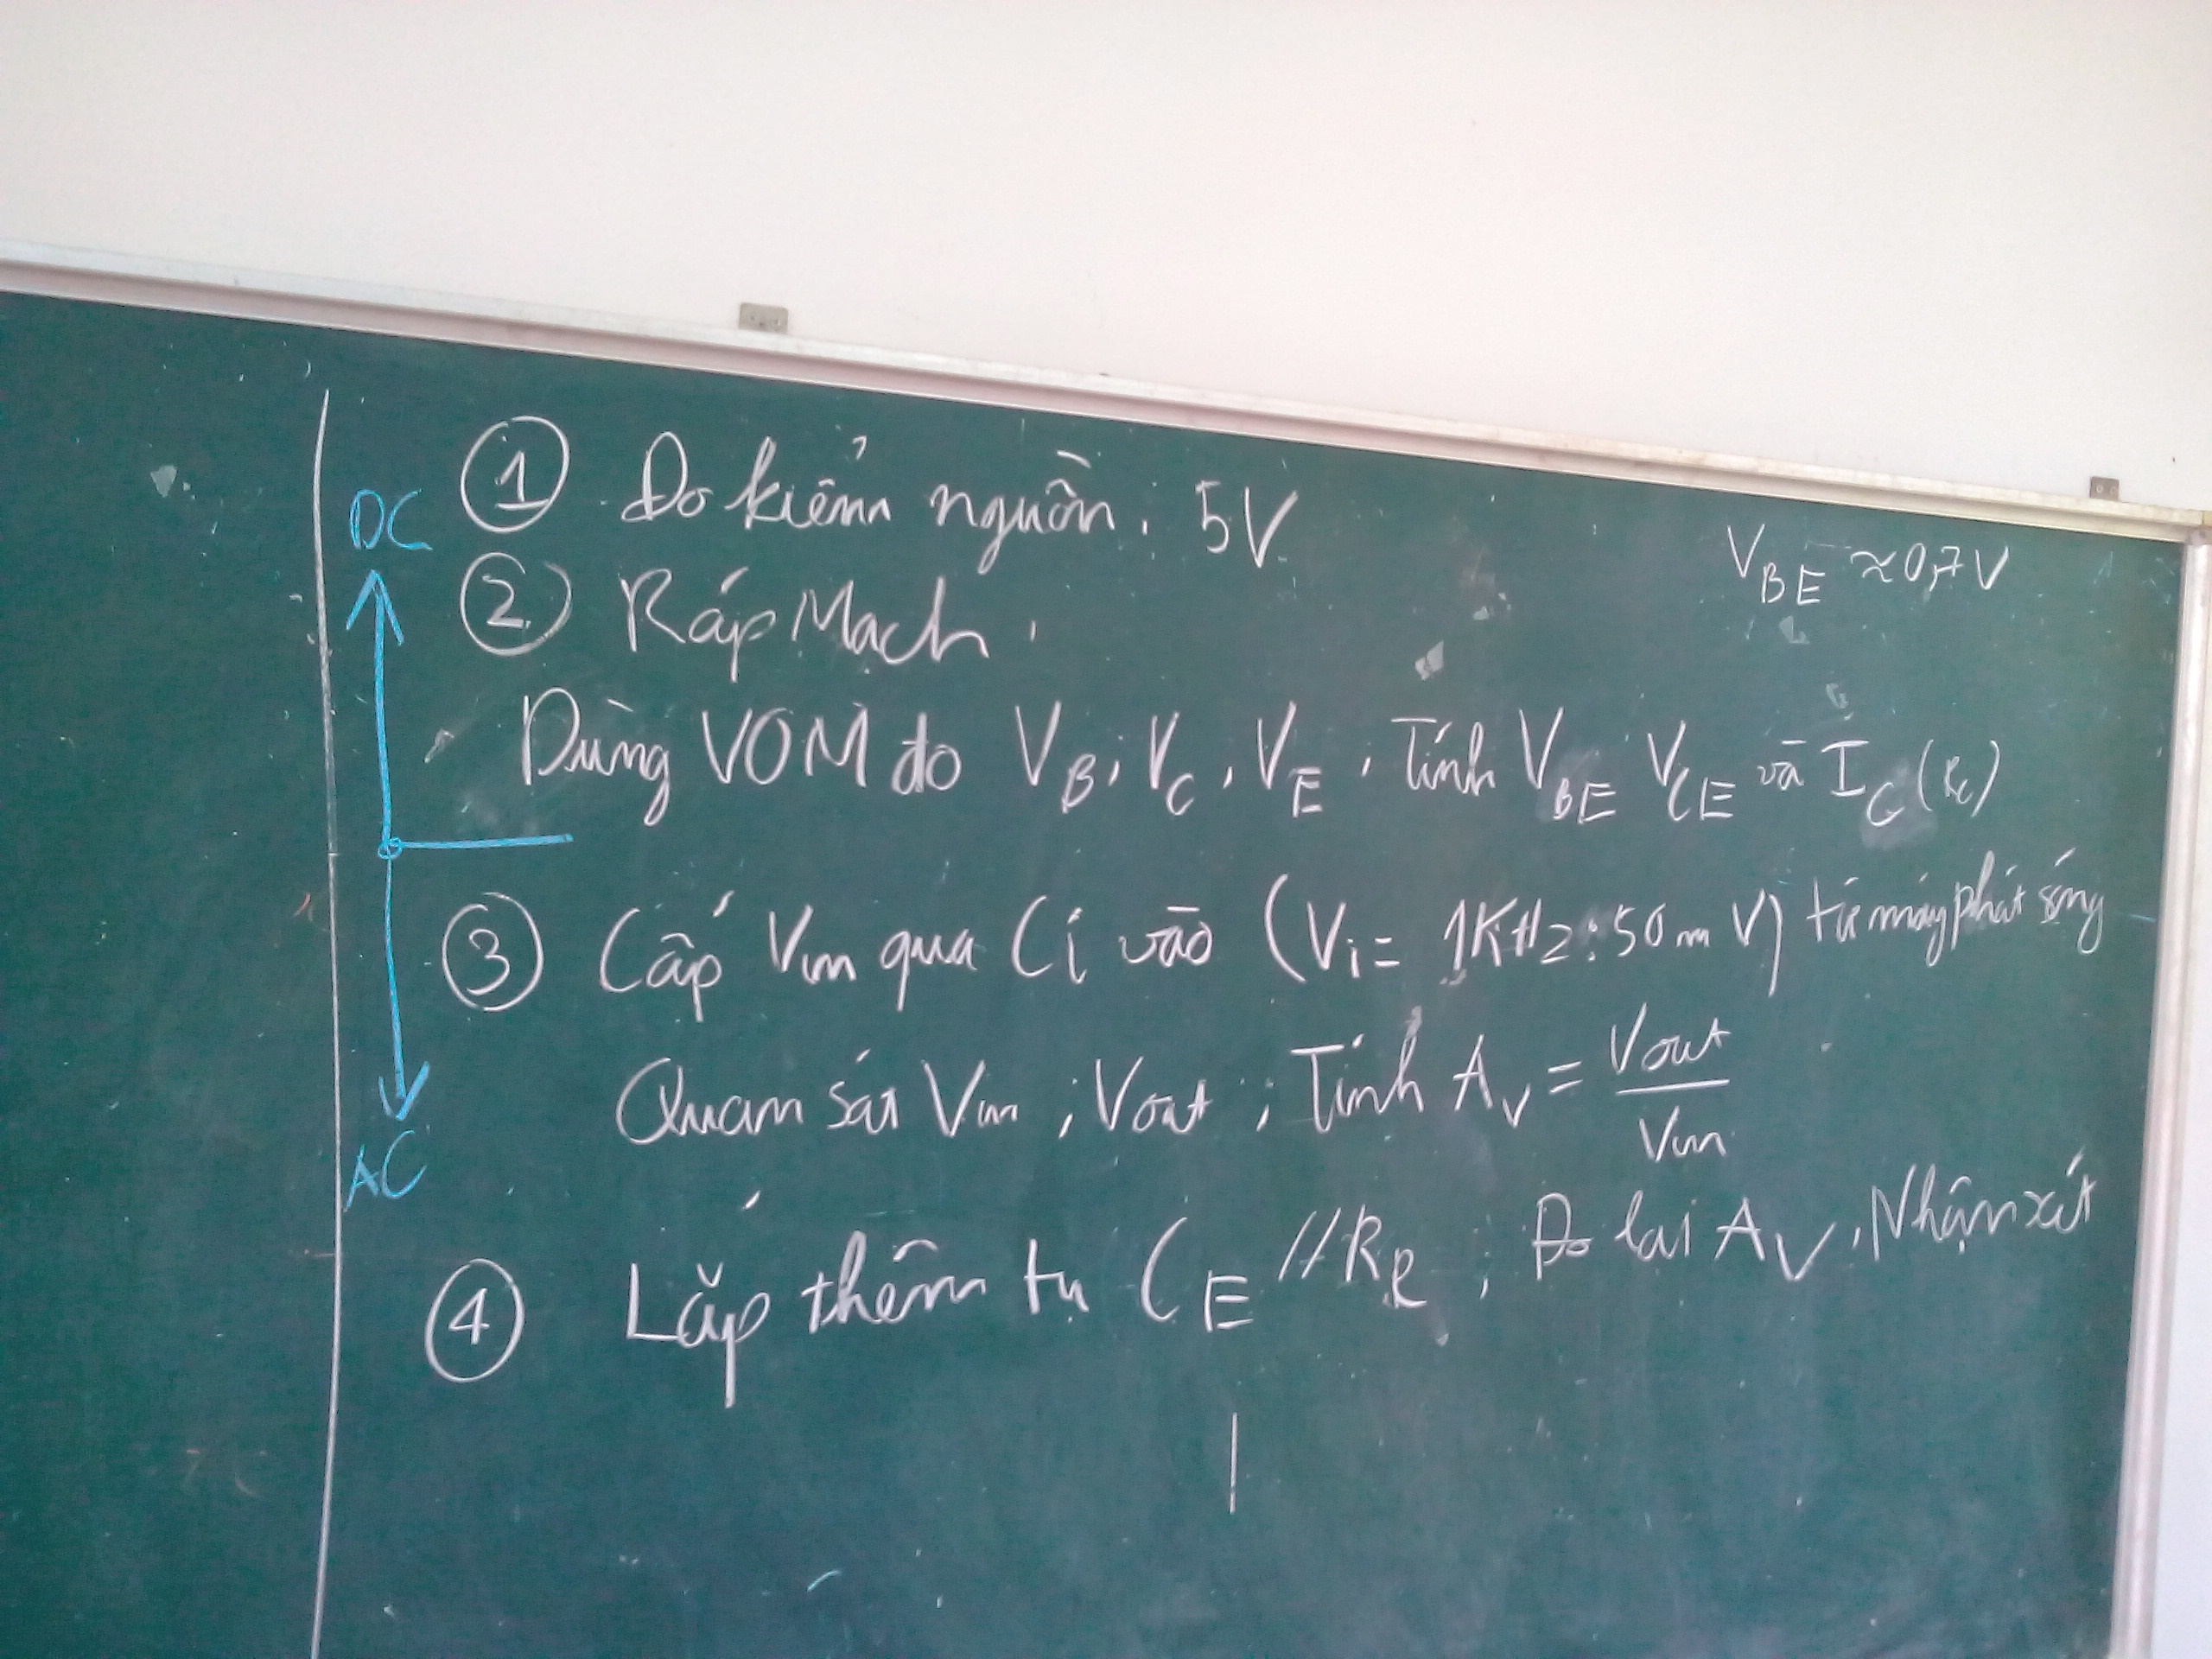 DC
① Đo kiểm nguồn. 5V
V_BE ≈ 0,7V
② Ráp Mạch.
Dùng VOM đo V_B, V_C, V_E, Tính V_BE V_CE và I_C (R_C)
③ Cấp Vin qua Ci vào (Vi = 1KHz: 50mV) từ máy phát sóng
Quan sát Vin ; Vout ; Tính A_V = Vout / Vin
AC
④ Lắp thêm tụ C_E // R_R ; Đo lại A_V, Nhận xét